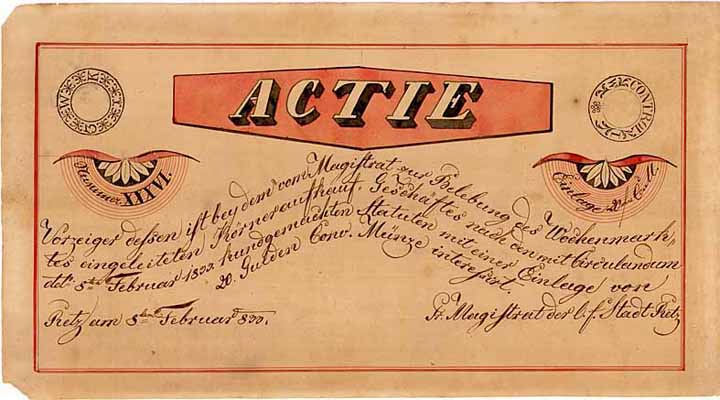 ACTIE
CONTROL
Nummer XXXVI.
Einlage 20 f C. M.
Vorzeiger dessen ist bey dem vom Magistrat zur Belebung des Wochenmark=
tes eingeleiteten Körneraufkauf. Geschäftes nach den mit Circulandum
ddt. 5ten Februar 1833. kundgemachten Statuten mit einer Einlage von
20. Gulden Conv. Münze interessirt
Retz am 5ten Februar 833.
Pr. Magistrat der l. f. Stadt Retz